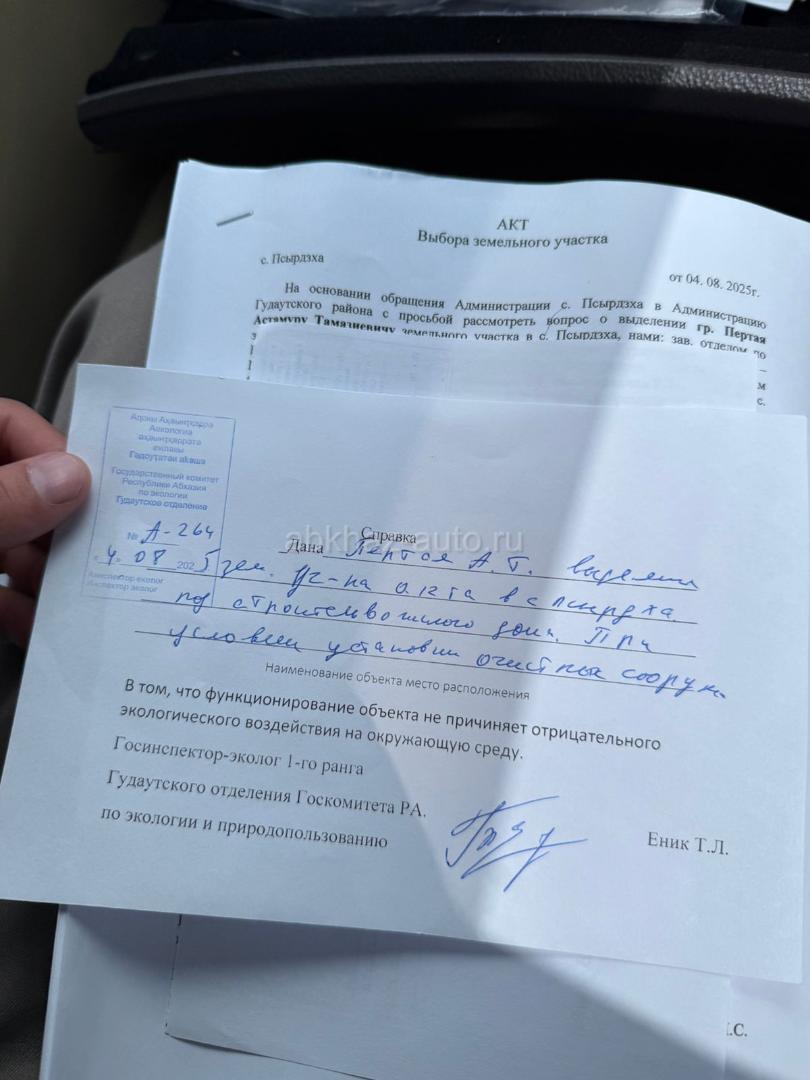 АКТ
Выбора земельного участка
с. Псырдзха
от 04. 08. 2025г.
На основании обращения Администрации с. Псырдзха в Администрацию
Гудаутского района с просьбой рассмотреть вопрос о выделении гр. Пертая
Астамуру Тамазиевичу земельного участка в с. Псырдзха, нами: зав. отделом по
–
м
с.
Гудоуҭатәи аҟәша
Государственный комитет
Республики Абхазия
по экологии
Гудаутское отделение
№ А-264
«4» 08 2025
Инспектор эколог
abkhaz-auto.ru
Справка
Дана Пертая А.Т. выделении
зем. уч-ка в с Псырдзха
под строительво жилого дома. При
условии установки очистных сооруж.
Наименование объекта место расположения
В том, что функционирование объекта не причиняет отрицательного
экологического воздействия на окружающую среду.
Госинспектор-эколог 1-го ранга
Гудаутского отделения Госкомитета РА.
по экологии и природопользованию
Еник Т.Л.
.С.